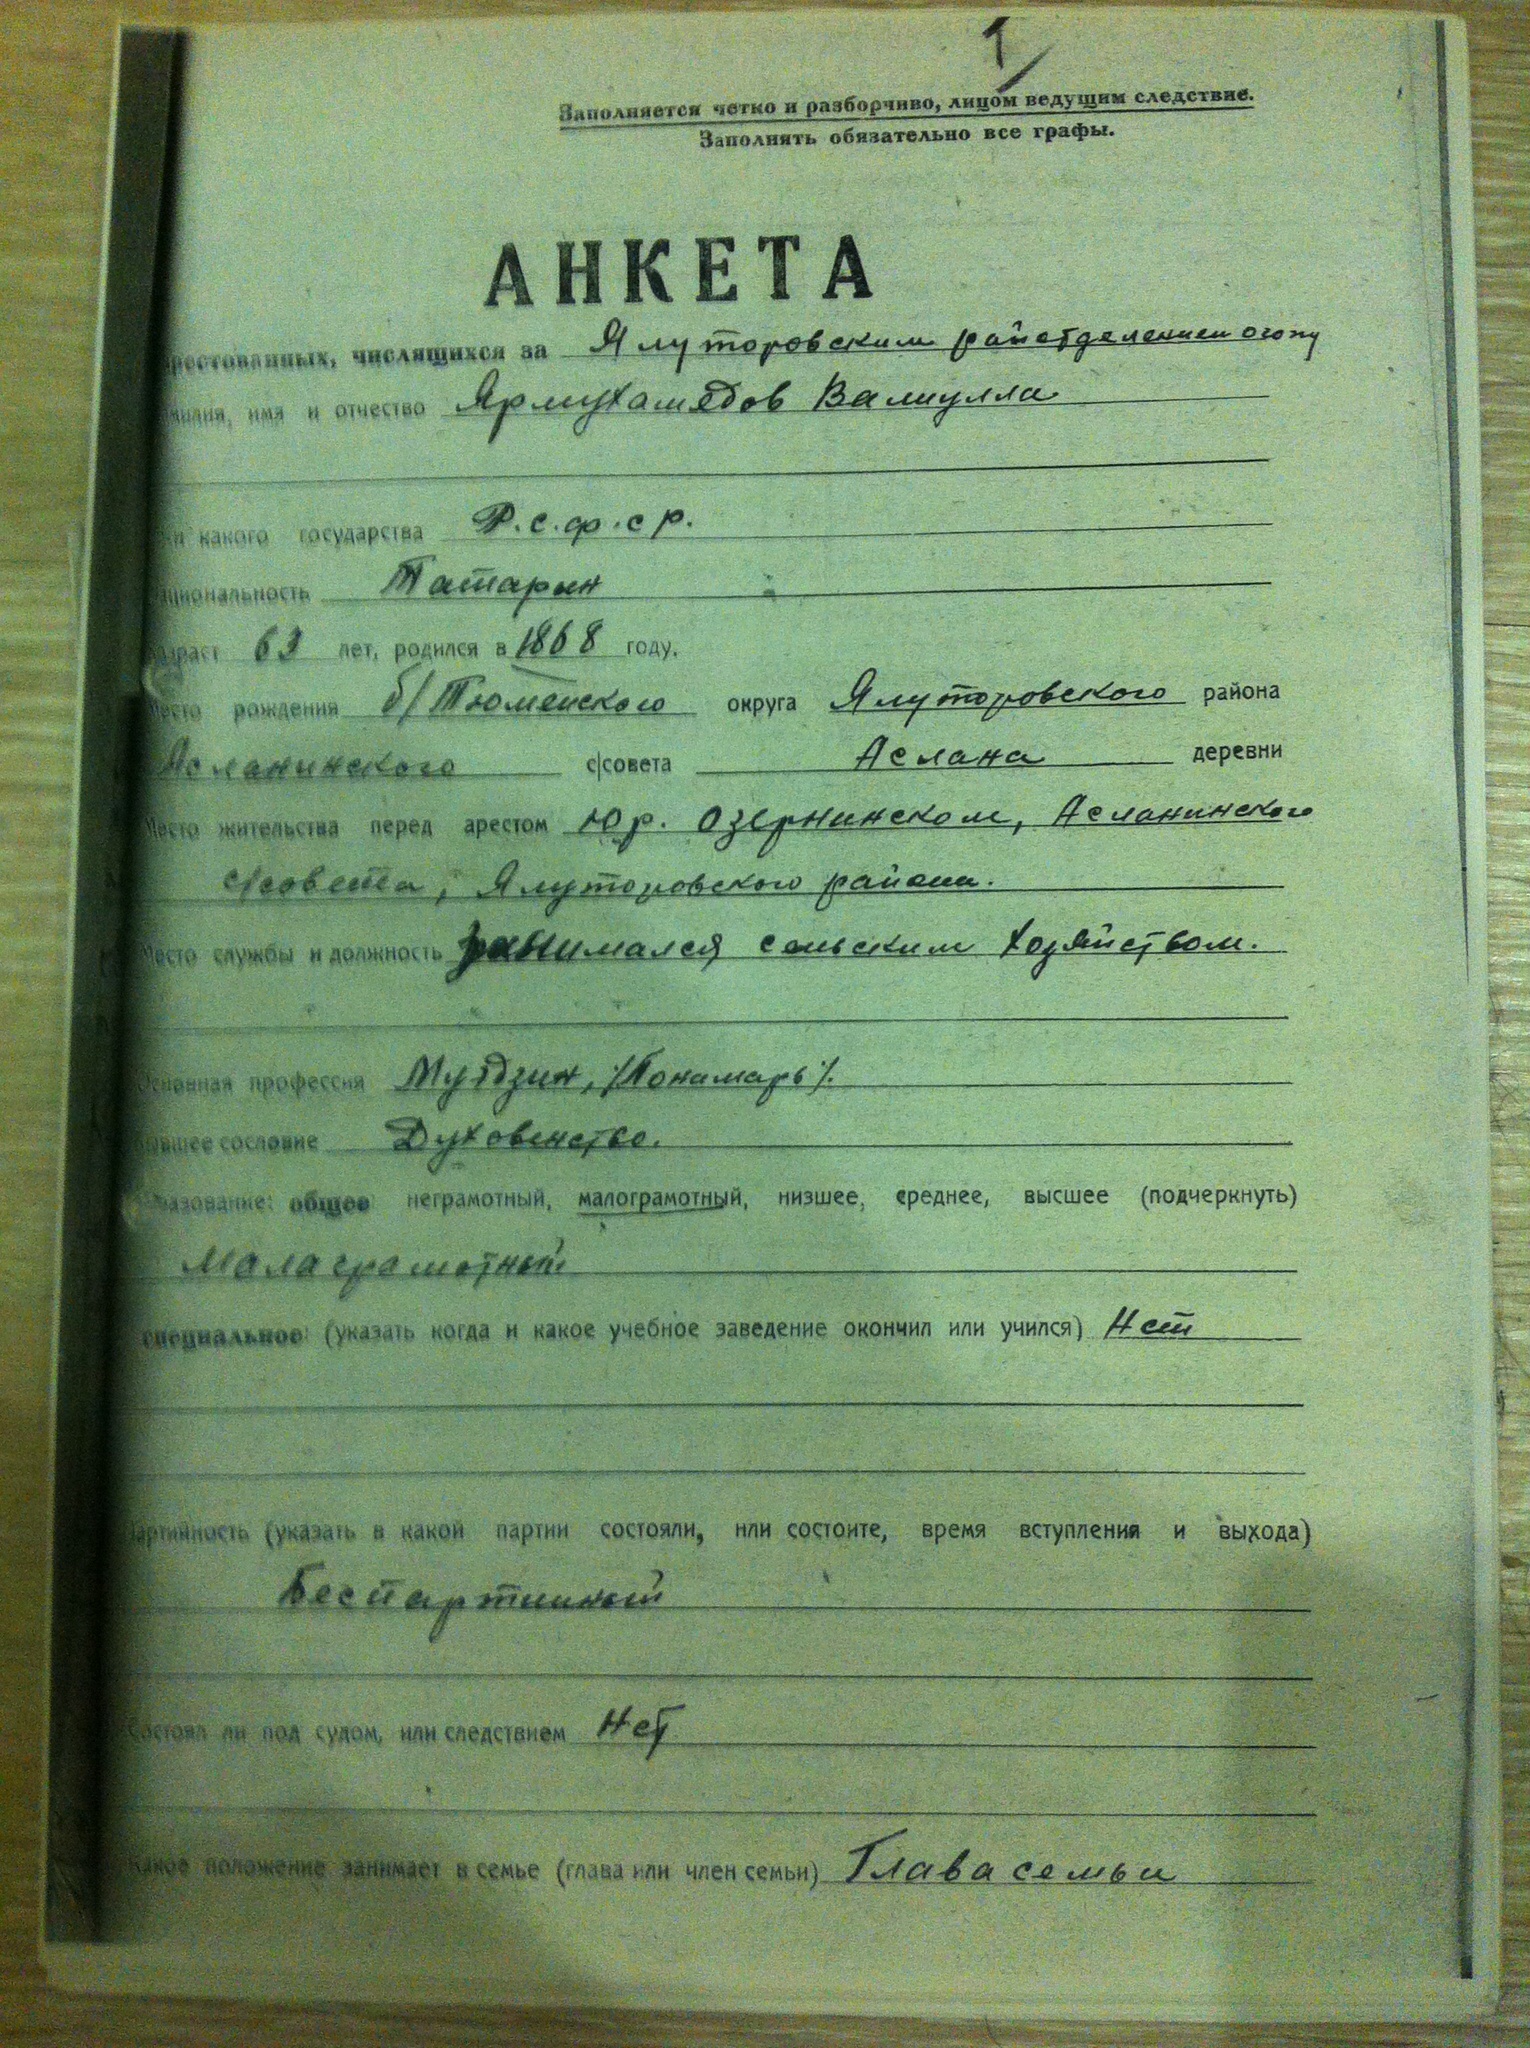 1
Заполняется четко и разборчиво, лицом ведущим следствие.
Заполнять обязательно все графы.
АНКЕТА
арестованных, числящихся за Ялуторовским райотделением огопу
Фамилия, имя и отчество Ярмухамедов Валиулла
какого государства Р.с.ф.с р.
Национальность Татарин
Возраст 63 лет, родился в 1868 году.
Место рождения б/Тюменского округа Ялуторовского района
Асланинского с/совета Аслана деревни
Место жительства перед арестом юр. Озернинском, Асланинского
с/совета, Ялуторовского района.
Место службы и должность занимался сельским хозяйством.
Основная профессия Муэдзин, /Понамарь/.
Бывшее сословие Духовенство.
Образование: общее неграмотный, малограмотный, низшее, среднее, высшее (подчеркнуть)
Малаграмотный
специальное: (указать когда и какое учебное заведение окончил или учился) Нет
Партийность (указать в какой партии состояли, или состоите, время вступления и выхода)
Беспартийный
Состоял ли под судом, или следствием Нет
Какое положение занимает в семье (глава или член семьи) Глава семьи